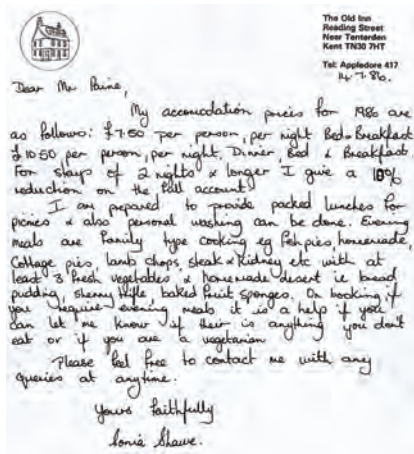 The Old Inn
Reading Street
Near Tenterden
Kent TN30 7HT
Tel: Appledore 417
14.7.86.
Dear Mr Paine,
My accomodation prices for 1986 are
as follows: £7.50 per person, per night Bed & Breakfast
£10.50 per person, per night, Dinner, Bed & Breakfast.
For stays of 2 nights & longer I give a 10%
reduction on the full account.
I am prepared to provide packed lunches for
picnics & also personal washing can be done. Evening
meals are family type cooking eg fish pies, homemade,
Cottage pies, lamb chops, steak & kidney etc with at
least 3 fresh vegetables & homemade desert ie bread
pudding, sherry trifle, baked fruit sponges. On booking if
you require evening meals it is a help if you
can let me know if their is anything you don't
eat or if you are a vegetarian
Please feel free to contact me with any
queries at anytime.
Yours faithfully
Sonia Shawe.